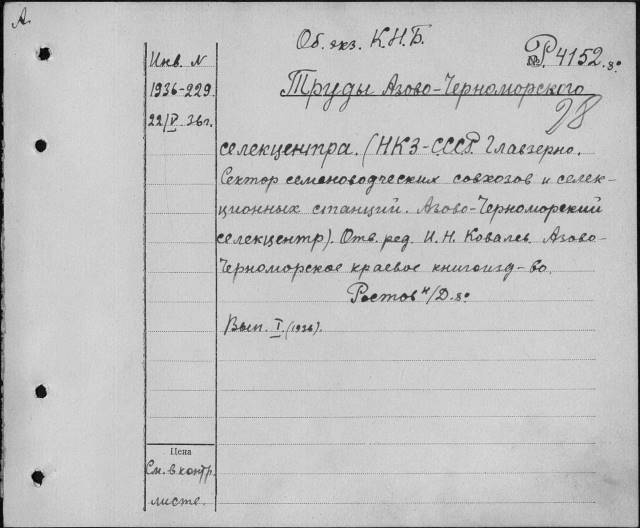 А.
Об. экз. К.Н.Б.
№ Р. 4152. 8°
Инв. N
1936-229.
22/V. 36г.
Труды Азово-Черноморского
28
селекцентра. (НКЗ-СССР. Главзерно.
Сектор семеноводческих совхозов и селек-
ционных станций. Азово-Черноморский
селекцентр). Отв. ред. И. Н. Ковалев. Азово-
Черноморское краевое книгоизд-во.
Ростов н/Д. 8°
Вып. I. (1936).
Цена
См. в контр.
листе.